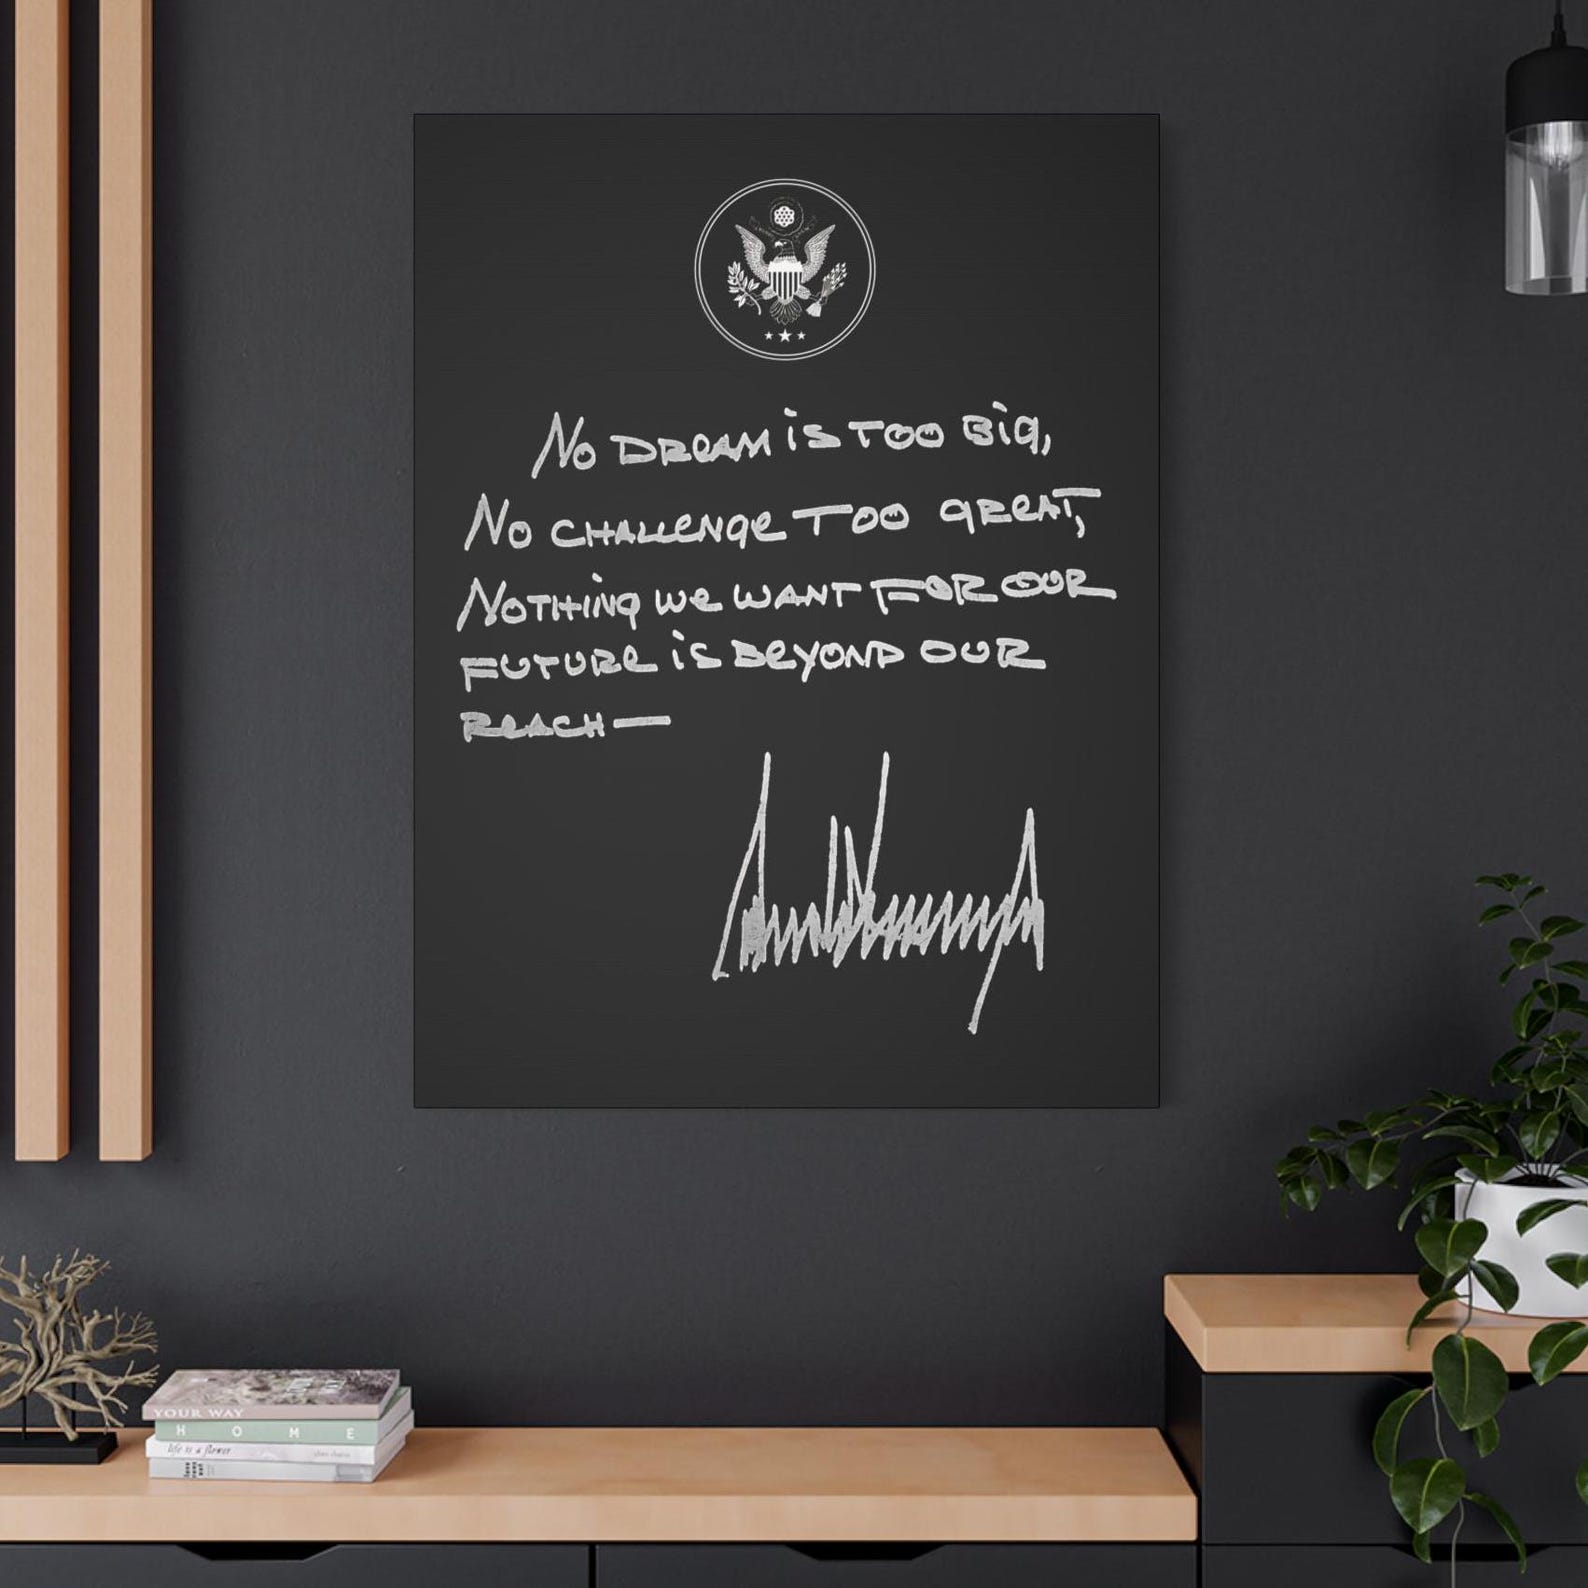 No DREAM is TOO BIG,
No CHALLENGE TOO GREAT,
NOTHING We WANT FOR OUR
FUTURE is BEYOND OUR
REACH—
YOUR WAY
HOME
life is a flower